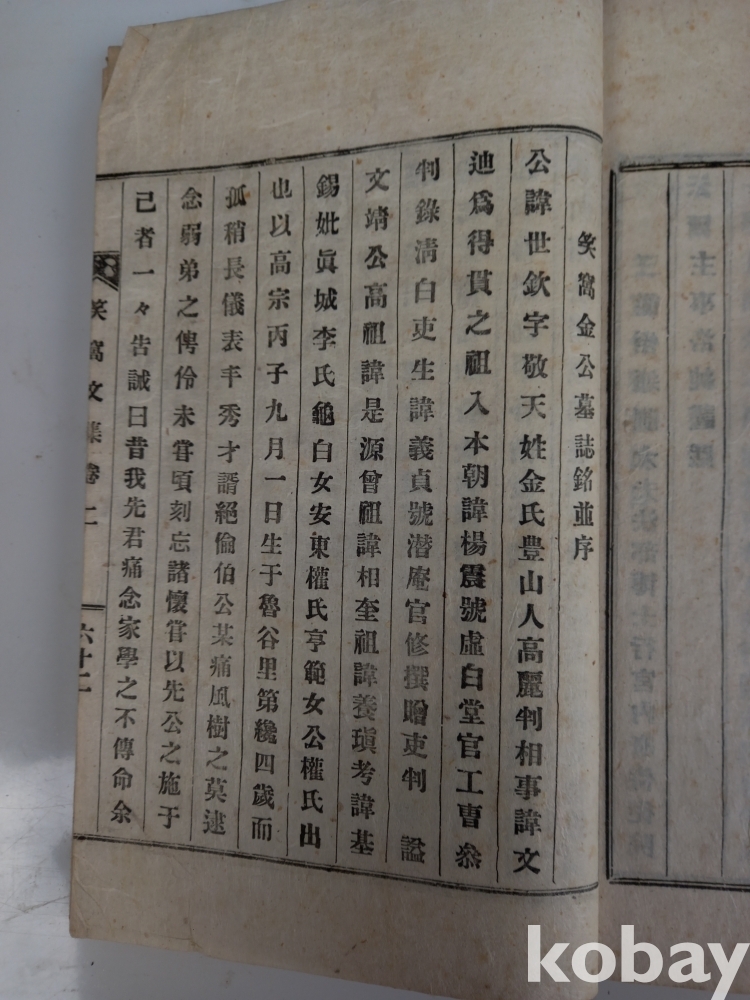 笑窩金公墓誌銘並序
公諱世欽字敬天姓金氏豊山人高麗判相事諱文
迪爲得貫之祖入本朝諱楊震號虛白堂官工曺叅
判錄淸白吏生諱義貞號潜庵官修撰贈吏判 謚
文靖公高祖諱是源曾祖諱相奎祖諱養瑱考諱基
錫妣眞城李氏龜白女安東權氏亨範女公權氏出
也以高宗丙子九月一日生于魯谷里第纔四歲而
孤稍長儀表丰秀才諝絕倫伯公某痛風樹之莫逮
念弱弟之俜伶未甞頃刻忘諸懷甞以先公之施于
己者一々告誡曰昔我先君痛念家學之不傳命余
笑窩文集卷二 六十二
kobay